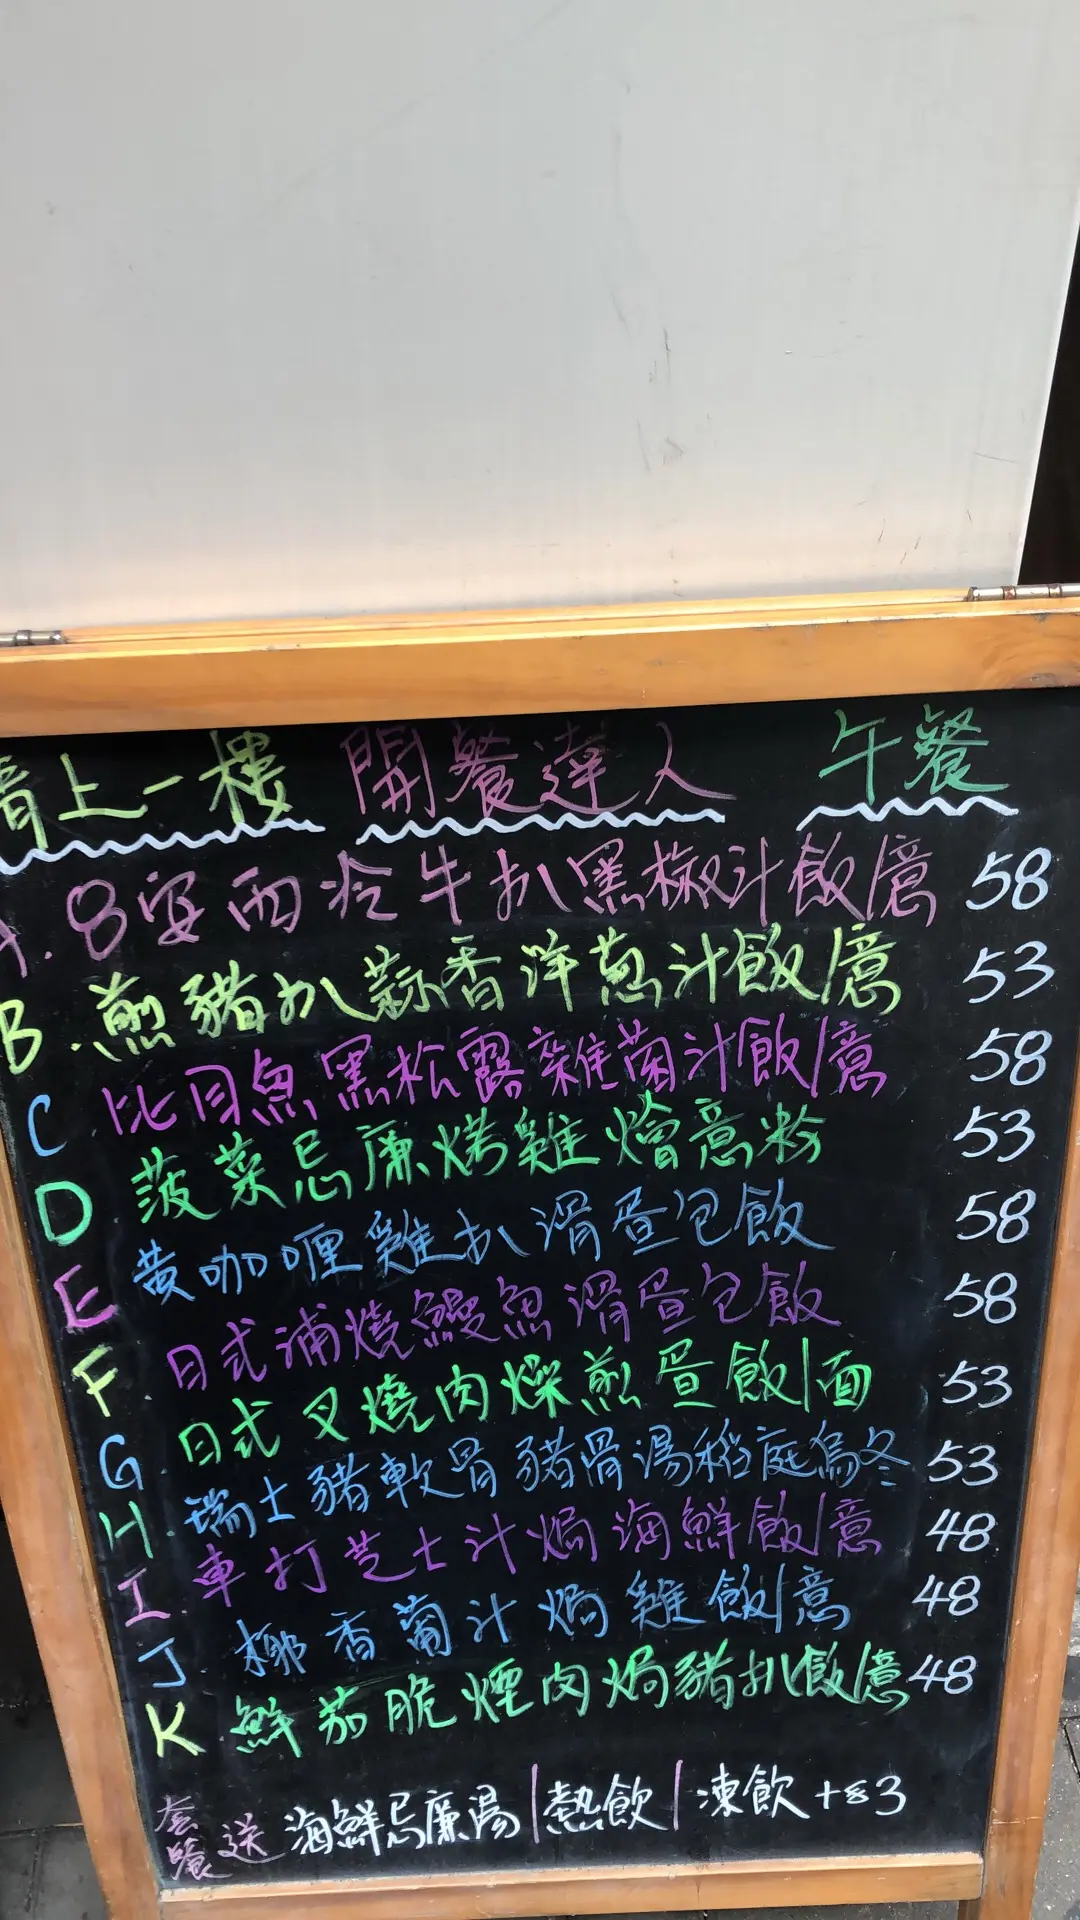 請上一樓 開餐達人 午餐
A. 8安西冷牛扒黑椒汁飯/意 58
B. 煎豬扒蒜香洋葱汁飯/意 53
C 比目魚黑松露雜菌汁飯/意 58
D 菠菜忌廉烤雞燴意粉 53
E 黃咖喱雞扒滑蛋包飯 58
F 日式蒲燒鰻魚滑蛋包飯 58
G. 日式叉燒肉燥煎蛋飯/面 53
H. 瑞士豬軟骨豬骨湯稻庭烏冬 53
I 車打芝士汁焗海鮮飯/意 48
J. 椰香葡汁焗雞飯/意 48
K 鮮茄脆煙肉焗豬扒飯/意 48
套餐送 海鮮忌廉湯/熱飲/凍飲+$3